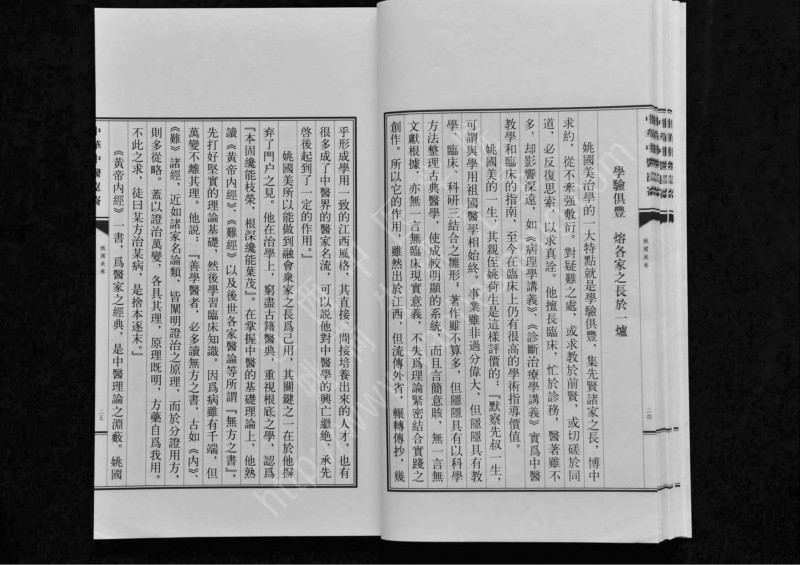 學驗俱豐　熔各家之長於一爐
姚國美治學的一大特點就是學驗俱豐，集先賢諸家之長，博中
求約，從不牽強敷衍。對疑難之處，或求教於前賢，或切磋於同
道，必反復思索，以求真詮。他擅長臨床，忙於診務，醫著雖不
多，却影響深遠，如《病理學講義》、《診斷治療學講義》實爲中醫
教學和臨床的指南，至今在臨床上仍有很高的學術指導價值。
姚國美的一生，其親侄姚荷生是這樣評價的：『默察先叔一生，
可謂與學用祖國醫學相始終。事業雖非過分偉大，但隱隱具有教
學、臨床、科研三結合之雛形，著作雖不算多，但隱隱具有以科學
方法整理古典醫學，使成較明顯的系統，而且言簡意賅，無一言無
文獻根據，亦無一言無臨床現實意義，不失爲理論緊密結合實踐之
創作。所以它的作用，雖然出於江西，但流傳外省，輾轉傳抄，幾
姚國美卷
二四
乎形成學用一致的江西風格，其直接、間接培養出來的人才，也有
很多成了中醫界的醫家名流，可以説他對中醫學的興亡繼絶、承先
啓後起到了一定的作用。』
姚國美所以能做到融會衆家之長爲己用，其關鍵之一在於他摒
弃了門户之見。他在治學上，窮盡古籍醫典，重視根底之學，認爲
『本固纔能枝榮，根深纔能葉茂』。在掌握中醫的基礎理論上，他熟
讀《黄帝内經》、《難經》以及後世各家醫論等所謂『無方之書』，
先打好堅實的理論基礎，然後學習臨床知識。因爲病雖有千端，但
萬變不離其理。他説：『善學醫者，必多讀無方之書，古如《内》、
《難》諸經，近如諸家名論類，皆闡明證治之原理，而於分證用方，
則多從略。蓋以證治萬變，各具其理，原理既明，方藥自爲我用。
不此之求，徒曰某方治某病，是捨本逐末。』
《黄帝内經》一書，爲醫家之經典，是中醫理論之淵藪。姚國
姚國美卷
二五